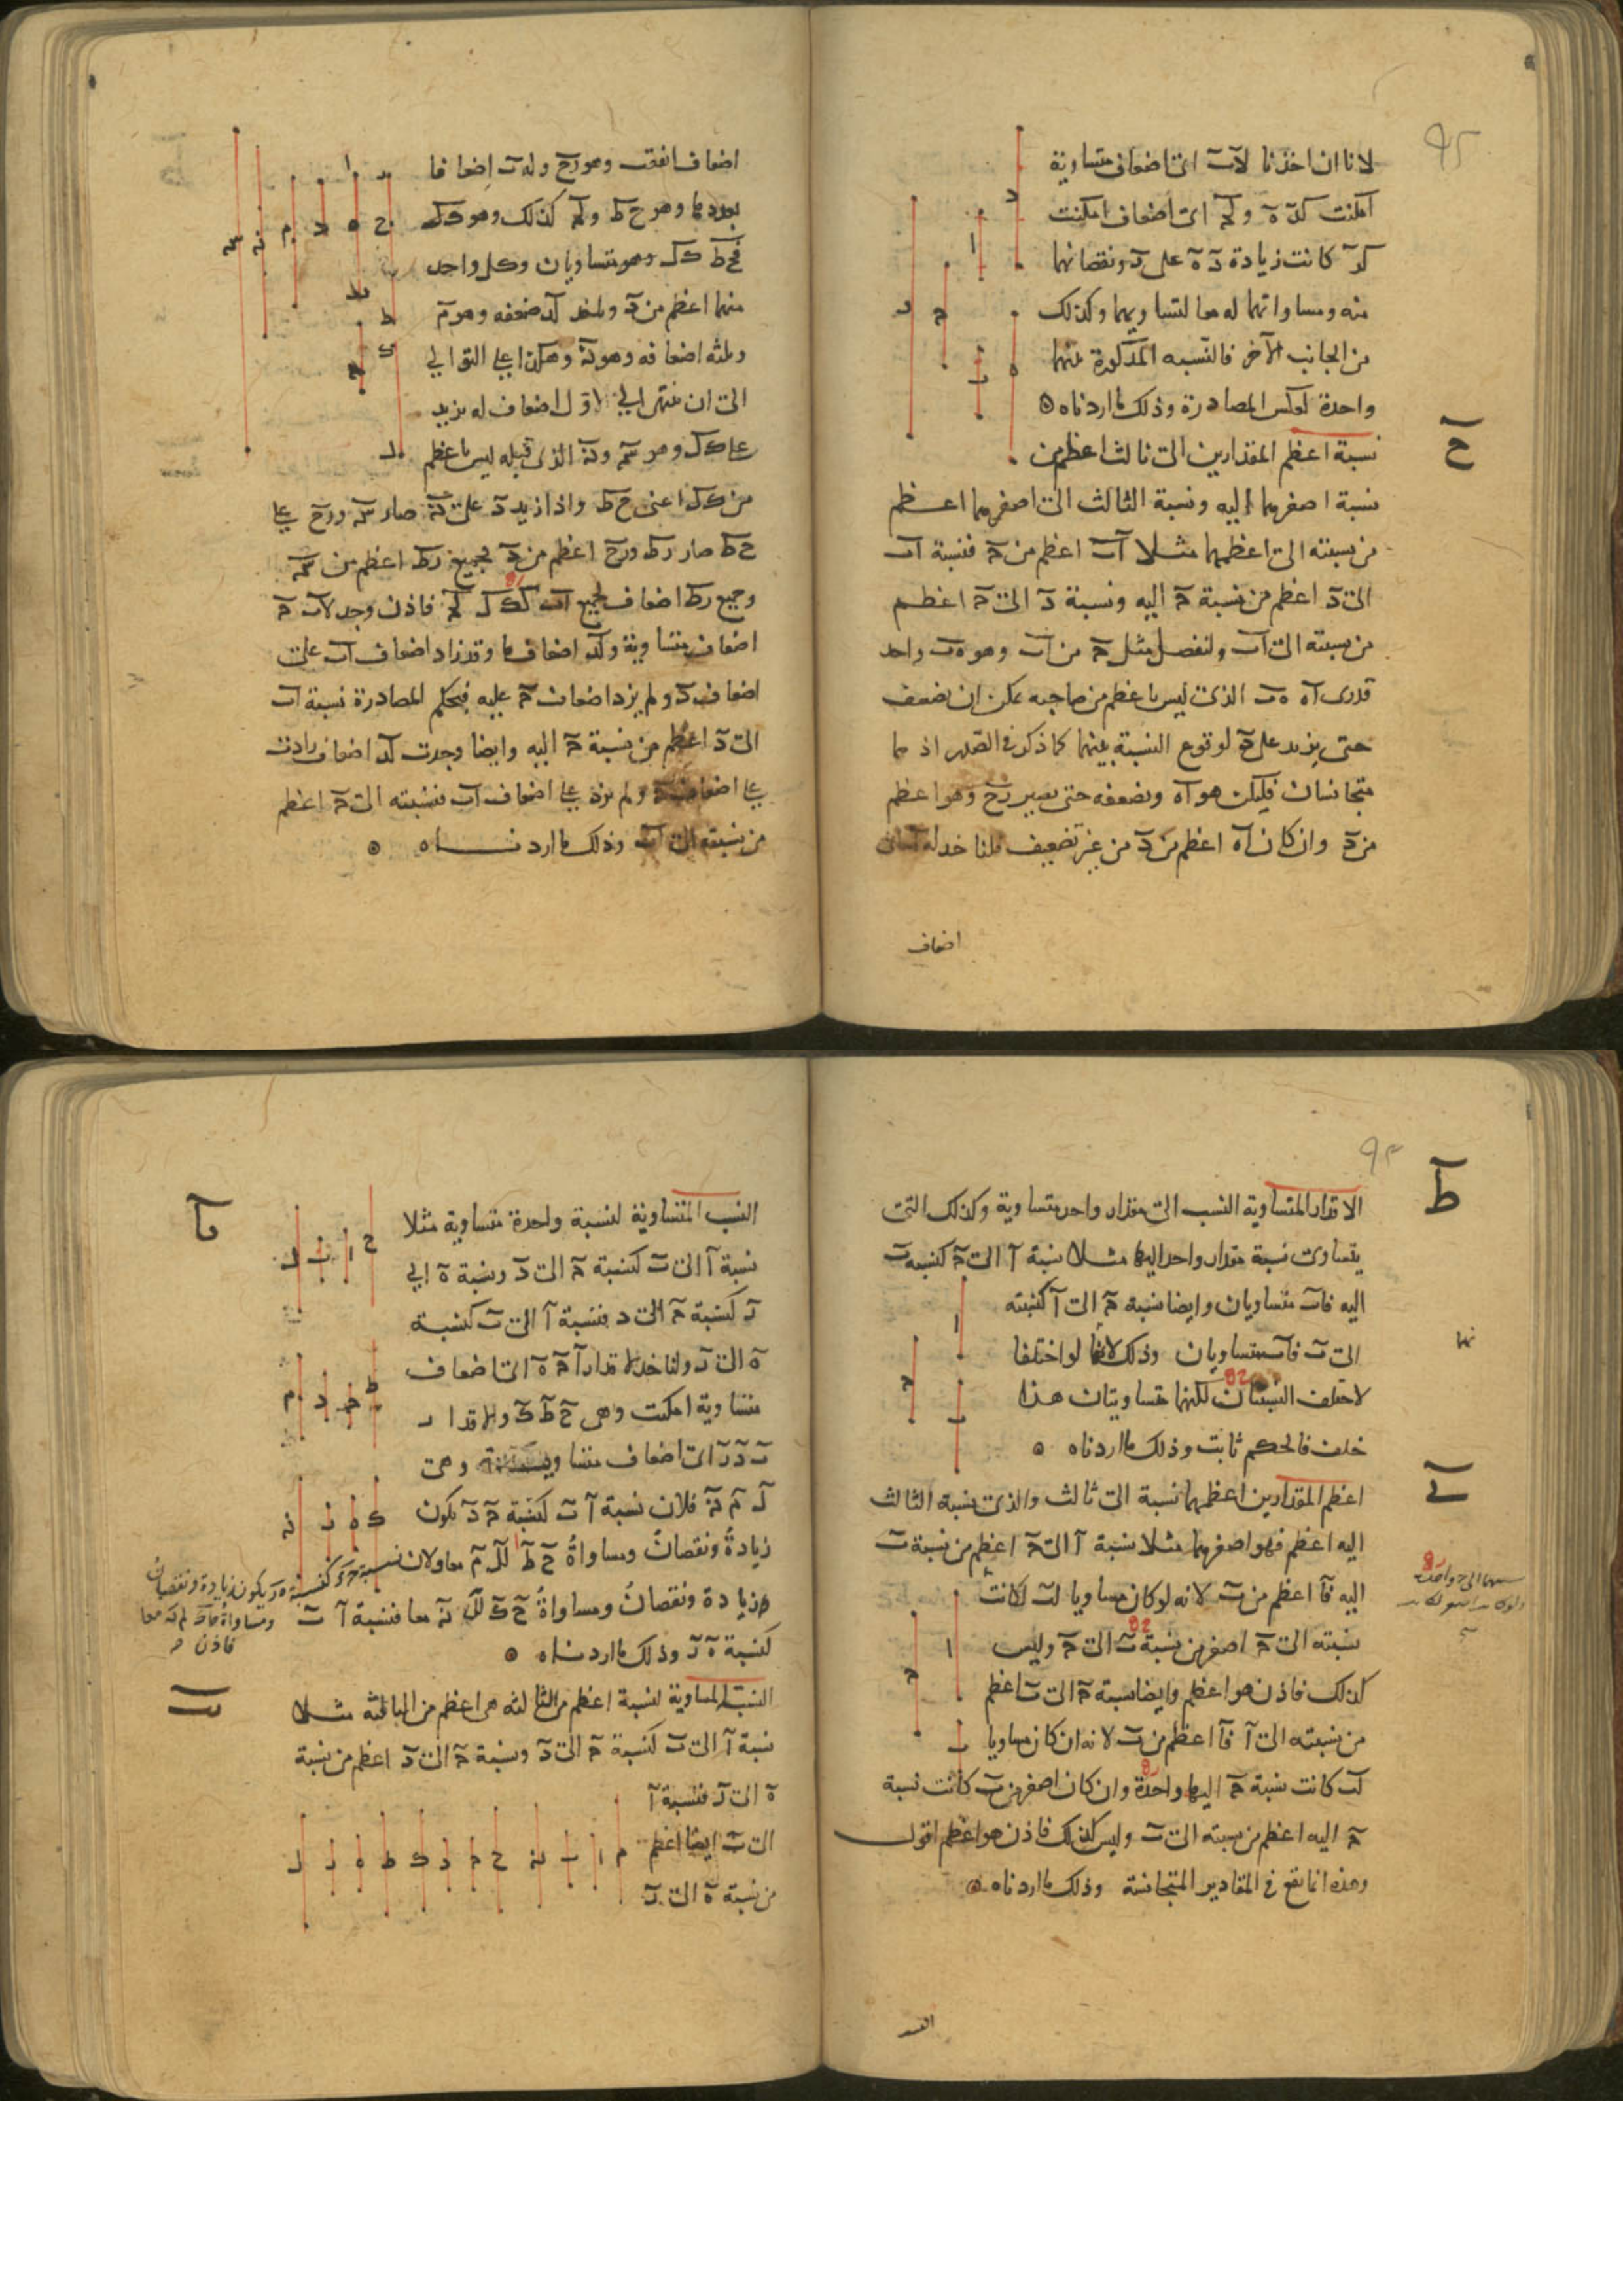 لانا ان اخذنا لآب اى اضعاف متساوية
امكنت كدَ ه ولجَ اى اضعاف امكنت
كرَ كانت زيادة دَ ه على رَ ونقصانهما
منه ومساواتهما له معا لتساويهما وكذلك
من الجانب الآخر فالنسبه المذكورة بينهما
واحدة لعكس المصادرة وذلك ما اردناه
ح
نسبة اعظم المقدارين الى ثالث اعظم من
نسبة اصغرهما اليه ونسبة الثالث الى اصغرهما اعظم
من نسبته الى اعظمهما مثلا اَب اعظم من حَ فنسبة اب
الى دَ اعظم من نسبة حَ اليه ونسبة دَ الى حَ اعظم
من نسبته الى اب ولنفصل مثل حَ من اب وهو هب واحد
قدرى اه هب الذى ليس باعظم من صاحبه يمكن ان يضعف
حتى يزيد على دَ لوقوع النسبة بينهما كما ذكر فى الصدر اذ هما
متجانسان فليكن هو اه ونضعفه حتى يصير زح وهو اعظم
من دَ وان كان اه اعظم من دَ من غير تضعيف فلناخد له
اضعاف
اضعاف اتفقت وهو زح وله ب اضعافا
بعددها وهو ح ط ولحَ كذلك وهو ك ل
فح ط ك ل وهو متساويان وكل واحد
منهما اعظم من دَ ولنخد لد ضعفه وهو م
وثلثه اضعافه وهو نَ وهكذا على التوالي
الى ان ينتهى الي اول اضعاف له يزيد
على ك ل وهو سَ ونَ الذى قبله ليس باعظم
من ك ل اعنى ح ط واذا زيد دَ على نَ صار سَ وزح على
ح ط صار زط وزح اعظم من دَ فجميع زط اعظم من سَ
وجميع زط اضعاف لجميع اب كك ل لحَ فاذن وجد لاب حَ
اضعاف متساوية ولد اضعاف ما وقد زاد اضعاف اب على
اضعاف دَ ولم يزد اضعاف حَ عليه فبحكم المصادرة نسبة اب
الى دَ اعظم من نسبة حَ اليه وايضا وجدت لد اضعاف زادت
على اضعاف حَ ولم يزد على اضعاف اب فنسبته الى حَ اعظم
من نسبته الى اب وذلك ما اردناه
ط
الاقدار المتساوية النسب الى مقدار واحد متساوية وكذلك التى
يتساوى نسبة مقدار واحد اليها مثلا نسبة آ الى حَ كنسبة ب
اليه فاب متساويان وايضا نسبة حَ الى آ كنسبته
الى ب فاب متساويان وذلك لانهما لو اختلفا
لاختلف النسبتان لكنهما متساويتان هذا
خلف فالحكم ثابت وذلك ما اردناه
ى
اعظم المقدارين اعظمهما نسبة الى ثالث والذى نسبة الثالث
اليه اعظم فهو اصغرهما مثلا نسبة آ الى حَ اعظم من نسبة ب
اليه فآ اعظم من ب لانه لو كان مساويا لب لكانت
نسبته الى حَ اصغر من نسبة ب الى حَ وليس
كذلك فاذن هو اعظم وايضا نسبة حَ الى ب اعظم
من نسبته الى آ فآ اعظم من ب لانه ان كان مساويا
لب كانت نسبة حَ اليهما واحدة وان كان اصغر من ب كانت نسبة
حَ اليه اعظم من نسبته الى ب وليس كذلك فاذن هو اعظم اقول
وهذه انما تقع فى المقادير المتجانسة وذلك ما اردناه
يا
النسب المتساوية لنسبة واحدة متساوية مثلا
نسبة آ الى ب كنسبة حَ الى دَ ونسبة هَ الى
زَ كنسبة حَ الى د فنسبة آ الى ب كنسبة
هَ الى زَ ولناخد لاقدار آ حَ هَ اى اضعاف
متساوية امكنت وهى حَ طَ كَ ولاقدار
بَ دَ زَ اى اضعاف متساوية وهى
لَ مَ نَ فلان نسبة آ ب كنسبة حَ دَ يكون
زيادة ونقصان ومساواة حَ طَ للَ مَ معا ولان نسبة حَ دَ كنسبة هَ زَ يكون زيادة ونقصان
ومساواة طَ كَ لمَ نَ معا
فاذن
زيادة ونقصان ومساواة حَ كَ للَ نَ معا فنسبة آ ب
كنسبة هَ زَ وذلك ما اردناه
يب
النسبة المساوية لنسبة اعظم من الثالثه هى اعظم من الثالثه مثلا
نسبة آ الى ب كنسبة حَ الى دَ ونسبة حَ الى دَ اعظم من نسبة
هَ الى زَ فنسبة آ
الى ب ايضا اعظم
من نسبة هَ الى زَ